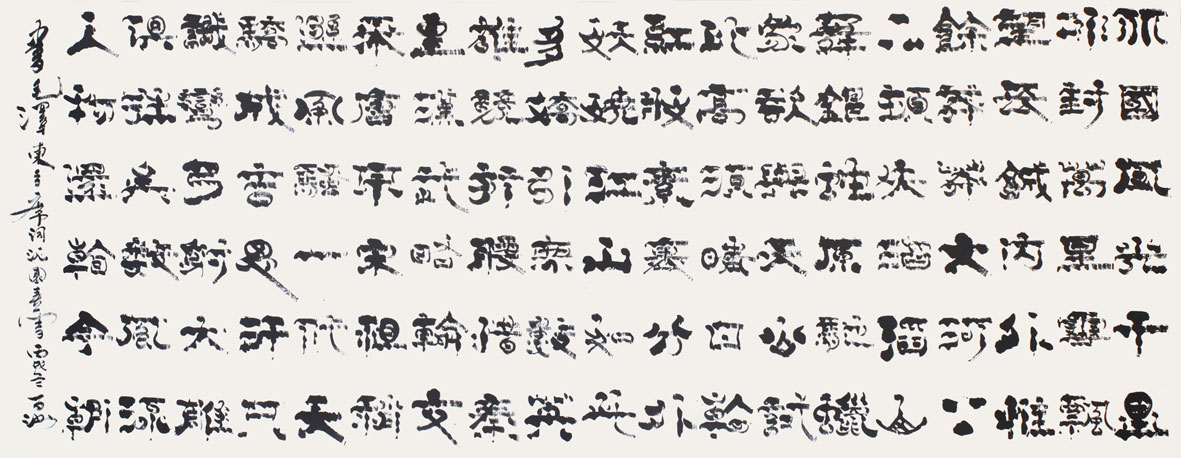 北國風光千里
冰封萬里雪飄
望長城內外惟
餘莽莽大河上
下頓失滔滔山
舞銀蛇原馳蠟
象欲與天公試
比高須晴日看
紅裝素裹分外
妖嬈江山如此
多嬌引無數英
雄競折腰惜秦
皇漢武略輸文
采唐宗宋祖稍
遜風騷一代天
驕成吉思汗只
識彎弓射大雕
俱往矣數風流
人物還看今朝
書毛澤東主席詞沁園春雪丙戌冬